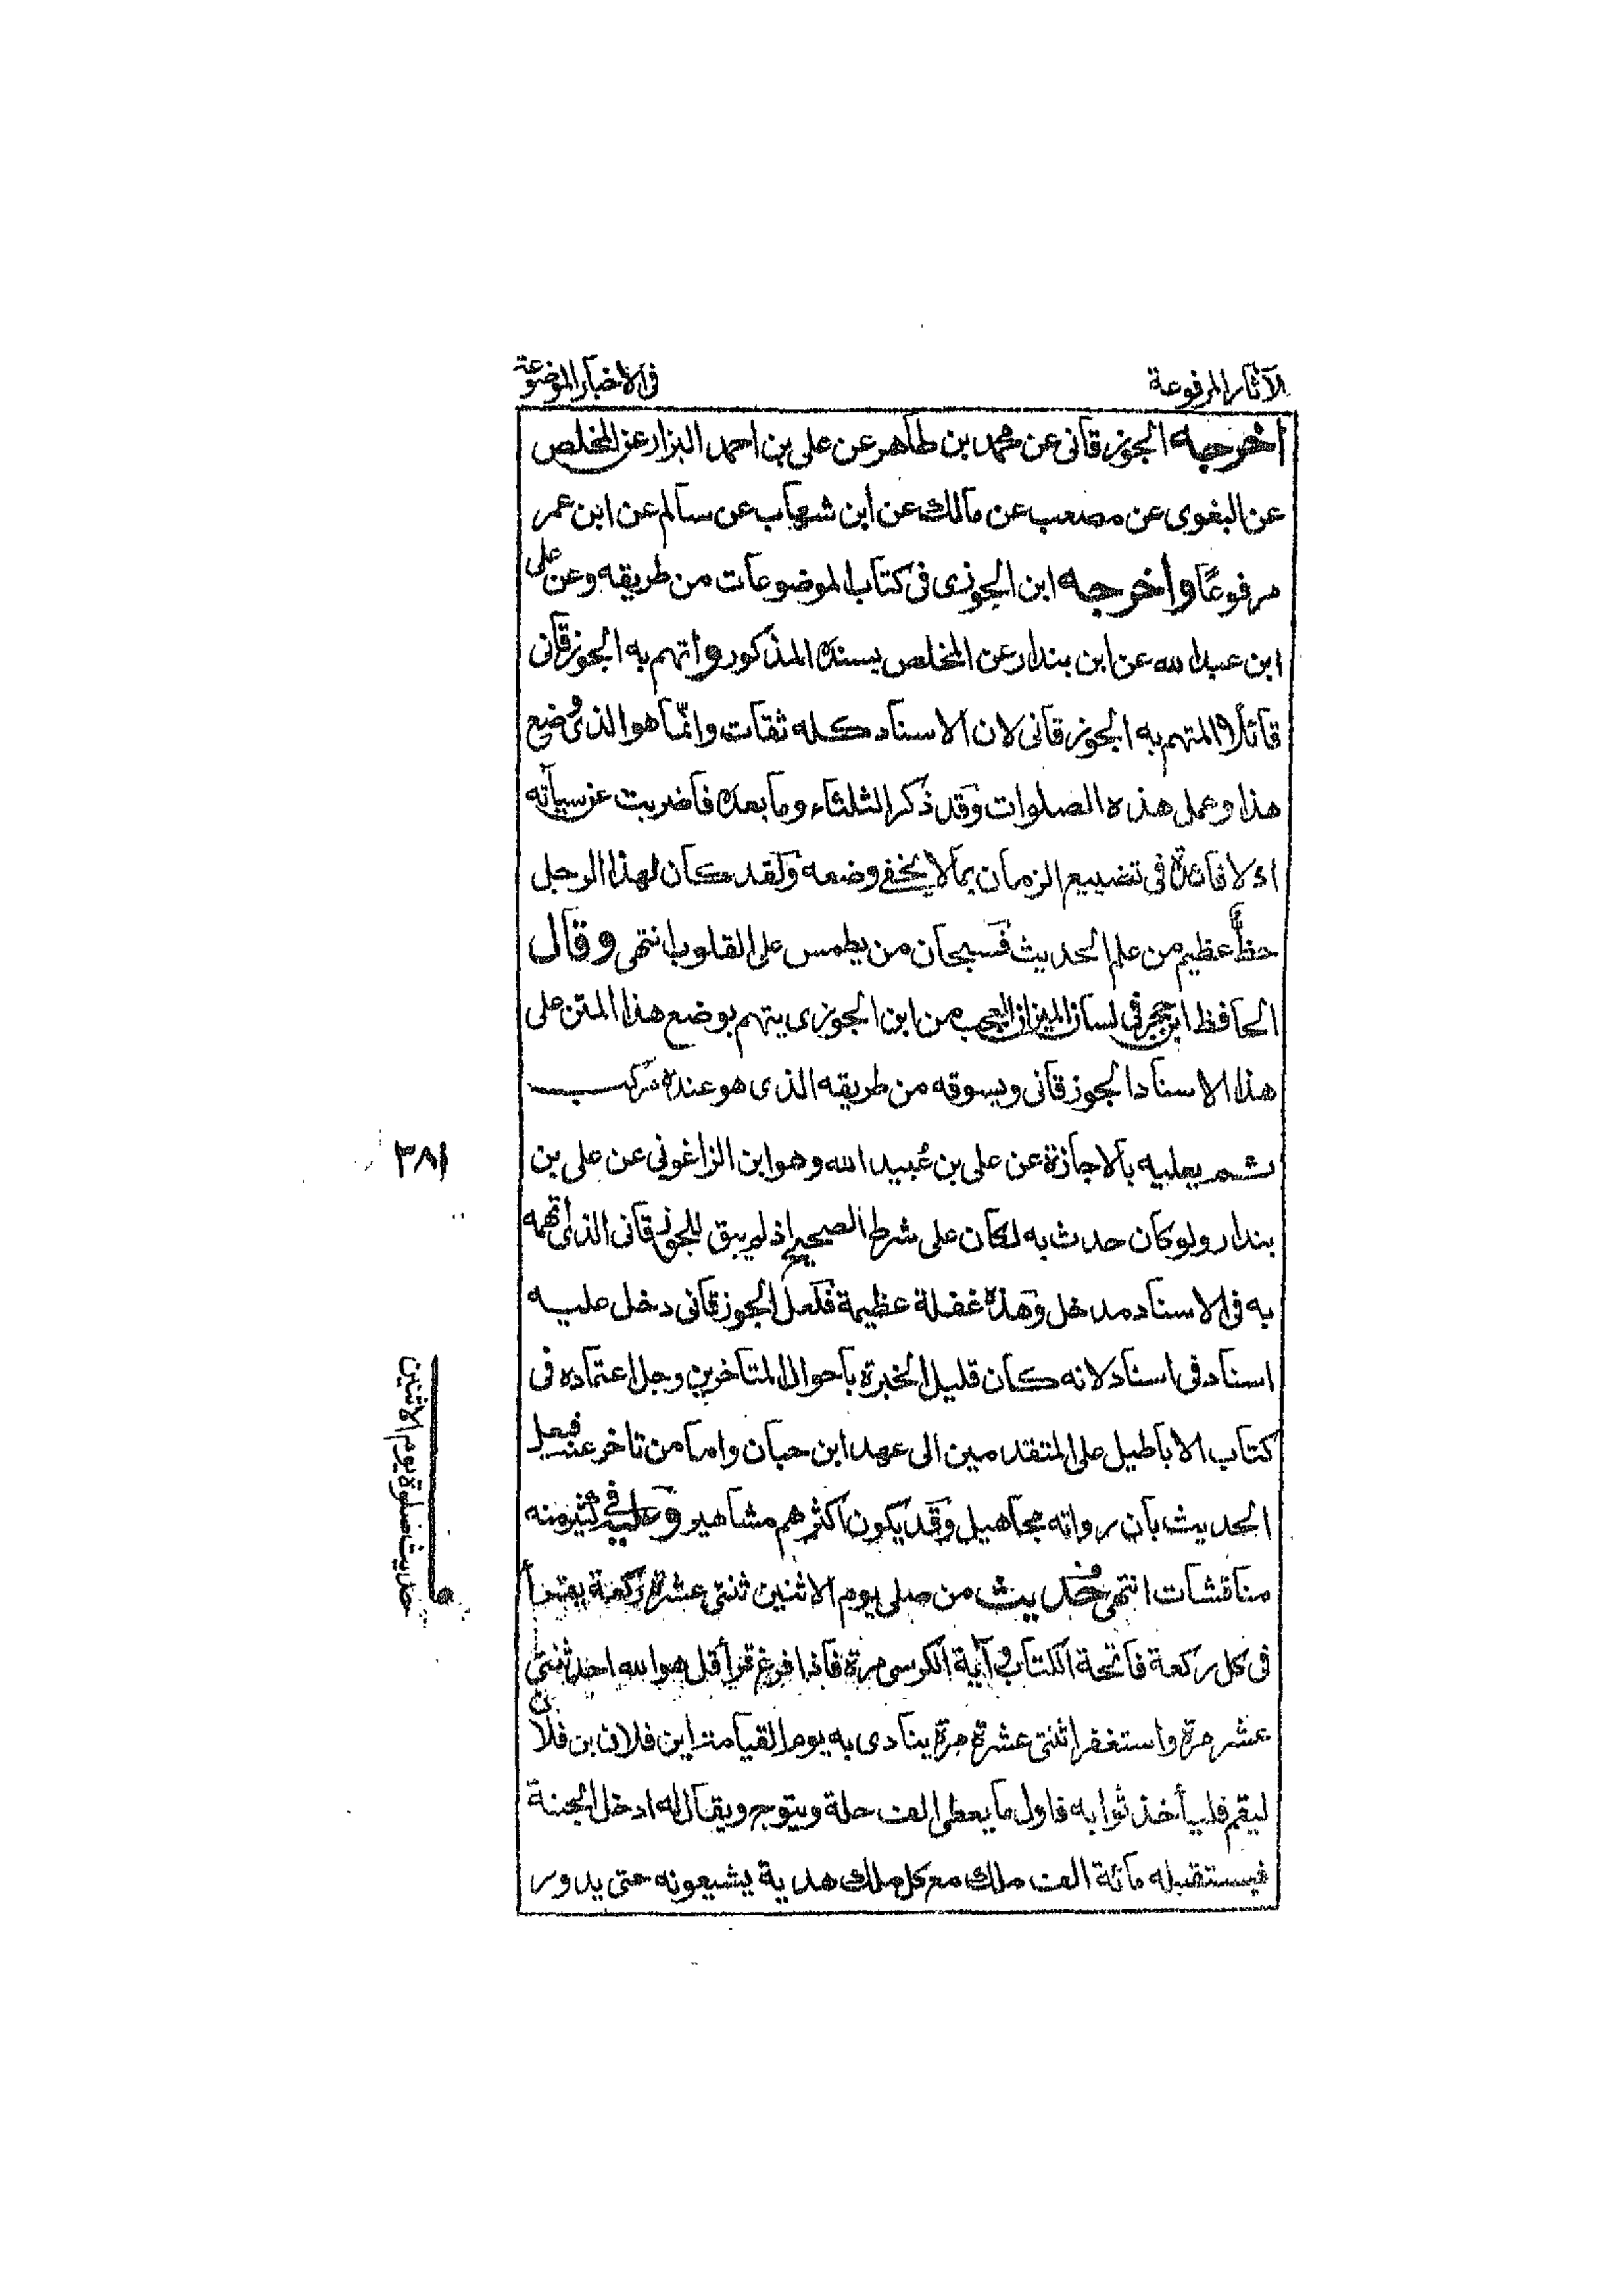 الآثار المرفوعة
فى الاخبار الموضوعة
اخرجه الجوزقانى عن محمد بن طاهر عن على بن احمد البزار عن المخلص
عن البغوى عن مصعب عن مالك عن ابن شهاب عن سالم عن ابن عمر
مرفوعًا واخرجه ابن الجوزى فى كتاب الموضوعات من طريقه وعن على
ابن عبد الله عن ابن بندار عن المخلص بسنده المذكور واتهم به الجوزقانى
قائلا والمتهم به الجوزقانى لان الاسناد كله ثقات وانّما هو الذى وُضع
هذا وعمل هذه الصلوات وقد ذكر الثلثاء وما بعده فاضربت عن سياته
اذ لا فائدة فى تضييع الزمان بما لا يخفى وضعه ولقد كان لهذا الرجل
حظٌّ عظيم من علم الحديث فسبحان من يطمس على القلوب انتهى وقال
الحافظ ابن حجر فى لسان الميزان العجب من ابن الجوزى يتهم بوضع هذا المتن على
هذا الاسناد الجوزقانى ويسوقه من طريقه الذى هو عنده مركب
ثم يعليه بالاجازة عن على بن عُبيد الله وهو ابن الزاغونى عن على بن
بندار ولو كان حدث به لكان على شرط الصحيح اذ لم يبق للجوزقانى الذى اتهمه
به فى الاسناد مدخل وهذه غفلة عظيمة فلعل الجوزقانى دخل عليه
اسناد فى اسناد لانه كان قليل الخبرة باحوال المتاخرين وجل اعتماده فى
كتاب الاباطيل على المتقدمين الى عهد ابن حبان واما من تاخر عنه فيعل
الحديث بان رواته مجاهيل وقد يكون اكثرهم مشاهير وعليه فى كثير منه
مناقشات انتهى حديث من صلى يوم الاثنين ثنتى عشرة ركعة يقرأ
فى كل ركعة فاتحة الكتاب وآية الكرسى مرة فاذا فرغ قرأ قل هو الله احد ثنتى
عشر مرة واستغفر اثنتى عشرة مرة ينادى به يوم القيامة اين فلان بن فلان
ليقم فليأخذ ثوابه فاول ما يعطى الف حلة ويتوج ويقال له ادخل الجنة
فيستقبله مائة الف ملك مع كل ملك هدية يشيعونه حتى يدور
٣٨١
حديث صلوة يوم الاثنين